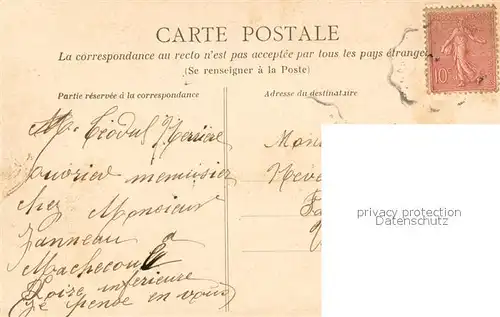 CARTE POSTALE
La correspondance au recto n'est pas acceptée par tous les pays étrange
(Se renseigner à la Poste)
Partie réservée à la correspondance
Adresse du destinataire
10
M. Téodul
ouvrier menuisier
chez Moncieur
Janneau
Machecoul
Loire inférieure
je pense en vous
Mon
privacy protection
Datenschutz